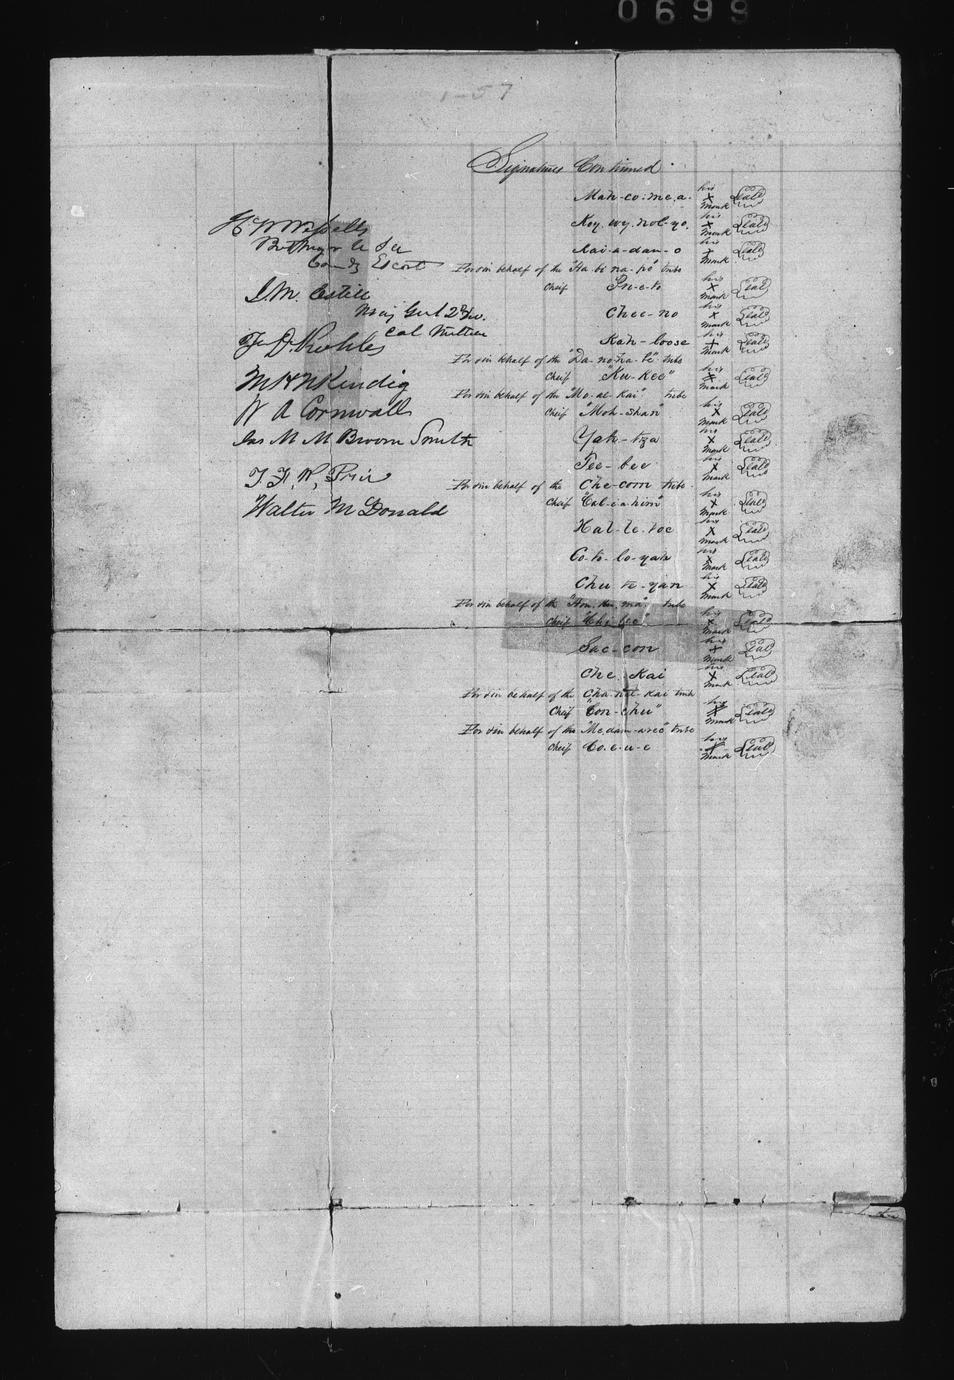 0699
1-57
Signatures Continued.
Mah-co:me,a. his x mark Seal
Key. wy. nol-yo. his x mark Seal
Kai-a-dan-o his x mark Seal
For & in behalf of the "Ha-bi-na-po" tribe
Cheif Sn-e-to his x mark Seal
Chee-no his x mark Seal
Kah-loose his x mark Seal
For & in behalf of the "Da-no-ha-be" tribe
Cheif "Ku-Kee" his x mark Seal
For & in behalf of the "Mo-al-Kai" tribe
Cheif "Moh-Shan" his x mark Seal
Yah-tza his x mark Seal
Tee-bee his x mark Seal
For & in behalf of the Che-com tribe
Cheif "Cal-i-a-him" his x mark Seal
Hal-le-toe his x mark Seal
Co-to-lo-yah his x mark Seal
Chu te-yan his x mark Seal
For & in behalf of the "How. Ku. ma" tribe
Cheif "Chi-bee" his x mark Seal
Sac-con his x mark Seal
Che. Kai his x mark Seal
For & in behalf of the Cha-net-Kai tribe
Cheif "Con-chu" his x mark Seal
For & in behalf of the "Me.dam-a-rec" tribe
Cheif Co. e-u-e his x mark Seal
H W Wessells
Bt Major
Comdg Escort
J. M. Estill
Maj Genl 2d
Cal Militia
M H N Kendig
W A Cornwall
Jas M M Broom Smith
Walter McDonald